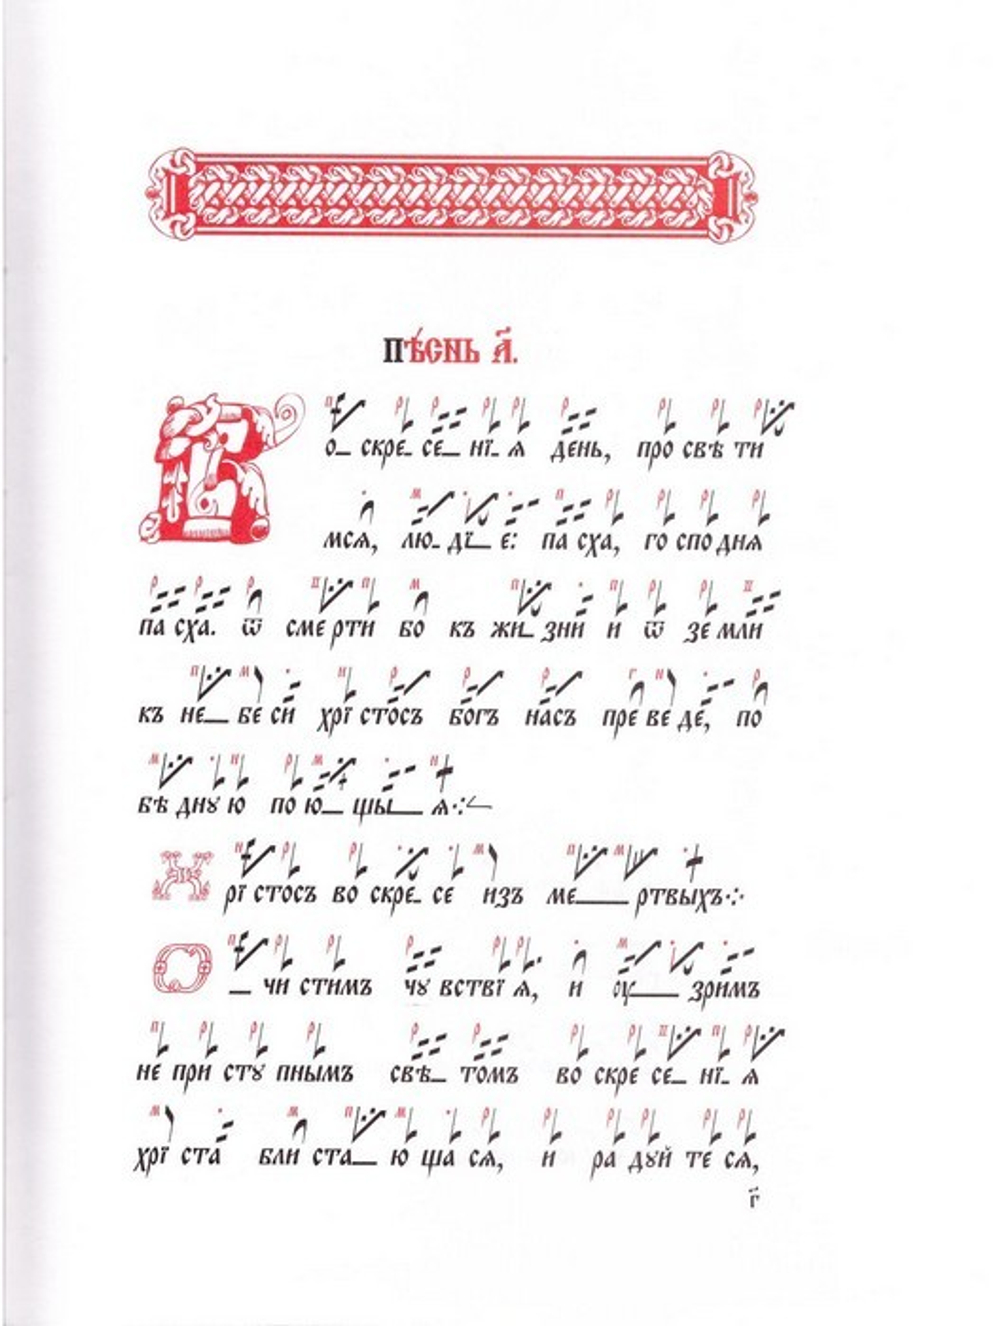 Пѣ́снь а҃.
Во_ скре_ се_ нї_ ѧ день, про свѣ ти
мсѧ, лю_ дї_ е: па сха, го спо днѧ
па сха. ѿ сме рти бо къ жи_ зни и ѿ зе мли
къ не_ бе си хрї стосъ богъ насъ пре ве де, по
бѣ дну ю по ю_ щы_ ѧ
Хрї стосъ во скре_ се изъ ме_ ртвыхъ
О_ чи стимъ чꙋ вствї ѧ, и оу_ зримъ
не при стꙋ пнымъ свѣ_ томъ во скре се_ нї_ ѧ
хрї ста бли ста_ ю ща сѧ, и ра дꙋй те сѧ,
г҃